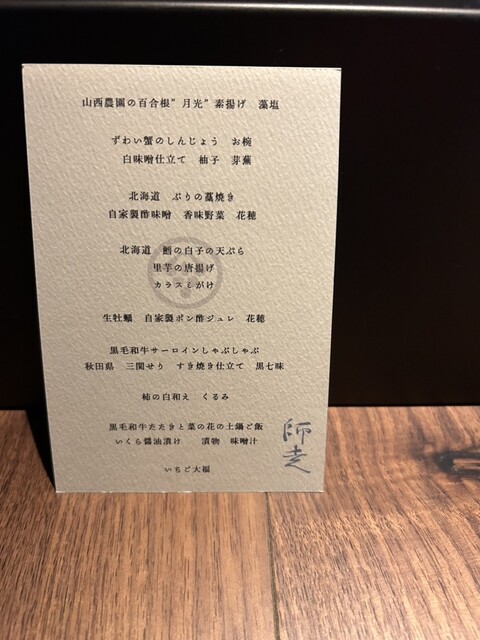 山西農園の百合根"月光"素揚げ　藻塩
ずわい蟹のしんじょう　お椀
白味噌仕立て　柚子　芽蕪
北海道　ぶりの藁焼き
自家製酢味噌　香味野菜　花穂
北海道　鱈の白子の天ぷら
里芋の唐揚げ
カラスミがけ
生牡蠣　自家製ポン酢ジュレ　花穂
黒毛和牛サーロインしゃぶしゃぶ
秋田県　三関せり　すき焼き仕立て　黒七味
柿の白和え　くるみ
黒毛和牛たたきと菜の花の土鍋ご飯
いくら醤油漬け　　漬物　味噌汁
いちご大福
師走